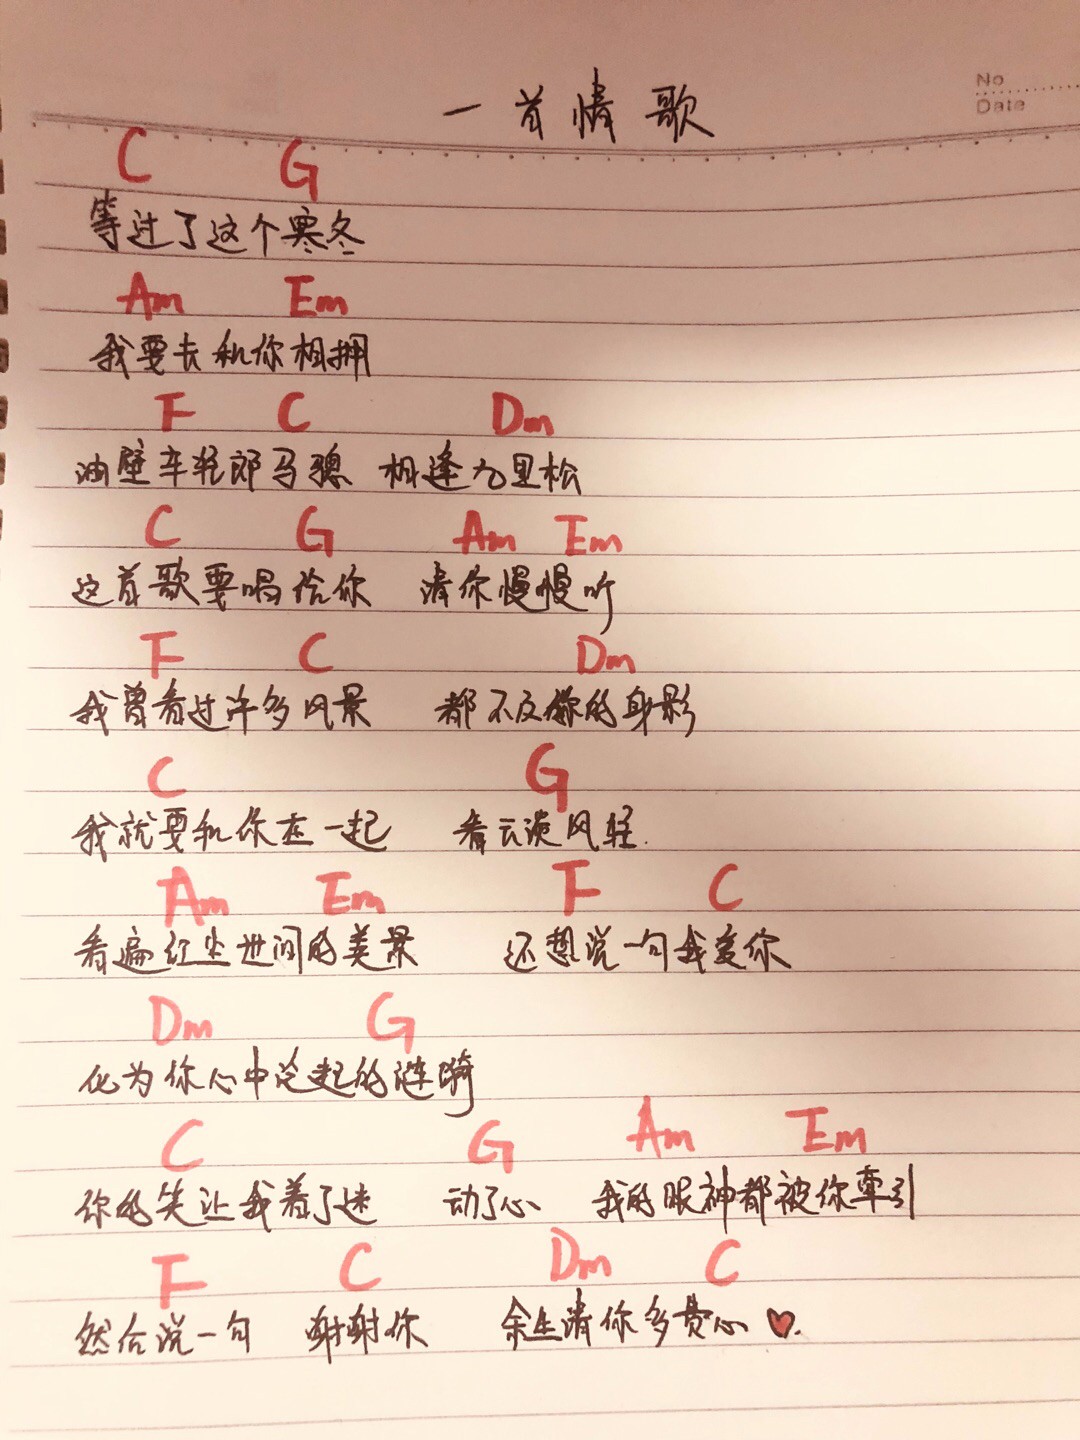 No
Date
一首情歌
C G
等过了这个寒冬
Am Em
我要去和你相拥
F C Dm
油壁车轻郎马骢 相逢九里松
C G Am Em
这首歌要唱给你 请你慢慢听
F C Dm
我曾看过许多风景 都不及你的身影
C G
我就要和你在一起 看云淡风轻.
Am Em F C
看遍红尘世间的美景 还想说一句我爱你
Dm G
化为你心中泛起的涟漪
C G Am Em
你的笑让我着了迷 动了心 我的眼神都被你牵引
F C Dm C
然后说一句 谢谢你 余生请你多费心♥.